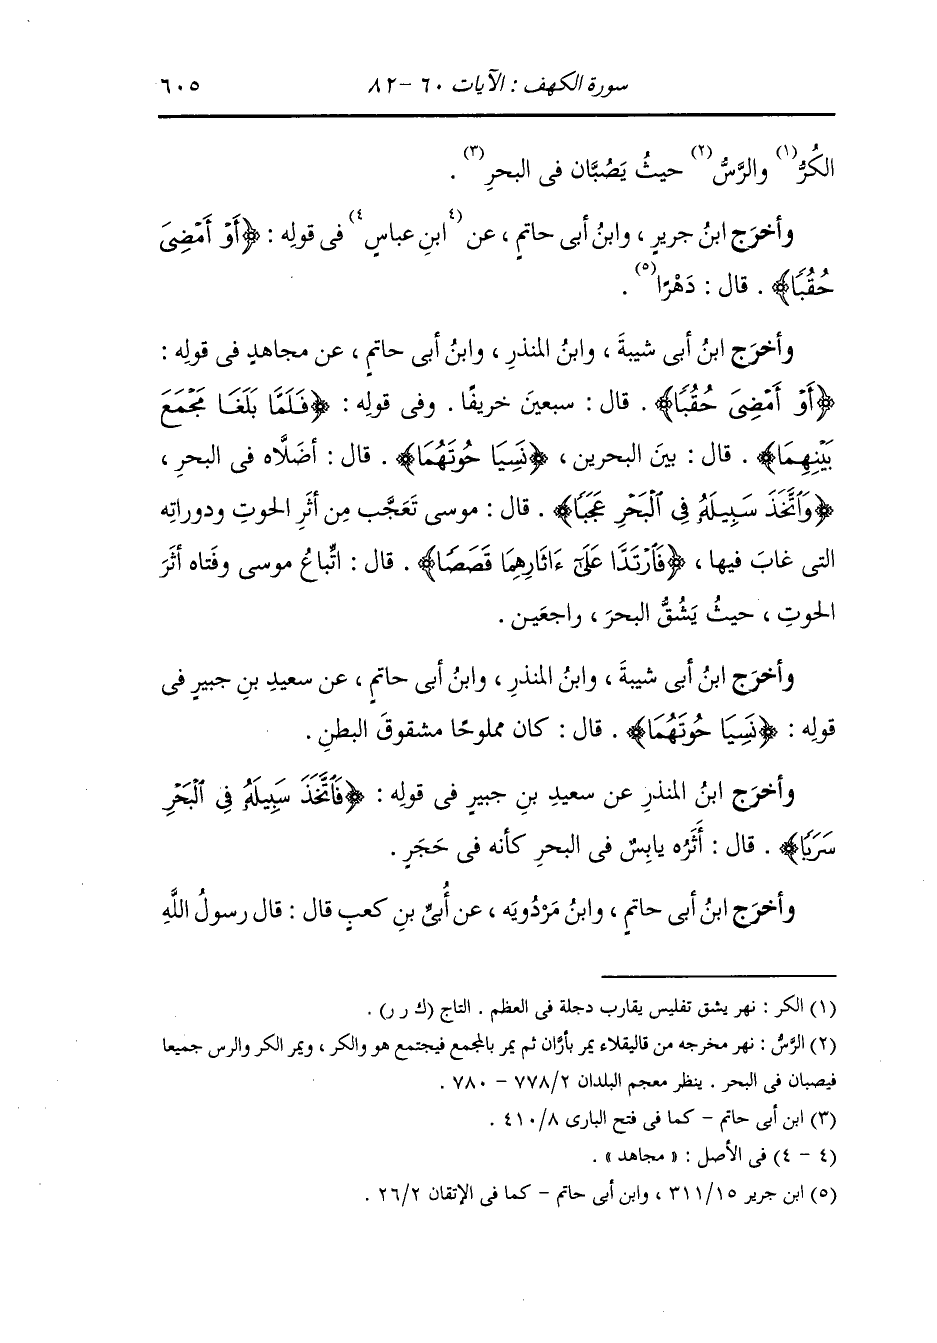 سورة الكهف : الآيات ٦٠ - ٨٢ ٦٠٥
الكُرُّ(١) والرَّسُّ(٢) حيثُ يَصُبَّان فى البحرِ(٣) .
وأخرَج ابنُ جريرٍ ، وابنُ أبى حاتمٍ ، عن (٤ابنِ عباسٍ٤) فى قولِه : ﴿أَوْ أَمْضِىَ
حُقُبًا﴾ . قال : دَهْرًا(٥) .
وأخرَج ابنُ أبى شيبةَ ، وابنُ المنذرِ ، وابنُ أبى حاتمٍ ، عن مجاهدٍ فى قولِه :
﴿أَوْ أَمْضِىَ حُقُبًا﴾ . قال : سبعينَ خريفًا . وفى قولِه : ﴿فَلَمَّا بَلَغَا مَجْمَعَ
بَيْنِهِمَا﴾ . قال : بينَ البحرين ، ﴿نَسِيَا حُوتَهُمَا﴾ . قال : أضَلَّاه فى البحرِ ،
﴿وَٱتَّخَذَ سَبِيلَهُۥ فِى ٱلْبَحْرِ عَجَبًا﴾ . قال : موسى تَعَجَّب مِن أثَرِ الحوتِ ودوراتِه
التى غابَ فيها ، ﴿فَٱرْتَدَّا عَلَىٰٓ ءَاثَارِهِمَا قَصَصًا﴾ . قال : اتِّباعُ موسى وفَتاه أثَرَ
الحوتِ ، حيثُ يَشُقُّ البحرَ ، راجعَين .
وأخرَج ابنُ أبى شيبةَ ، وابنُ المنذرِ ، وابنُ أبى حاتمٍ ، عن سعيدِ بنِ جبيرٍ فى
قولِه : ﴿نَسِيَا حُوتَهُمَا﴾ . قال : كان مملوحًا مشقوقَ البطنِ .
وأخرَج ابنُ المنذرِ عن سعيدِ بنِ جبيرٍ فى قولِه : ﴿فَٱتَّخَذَ سَبِيلَهُۥ فِى ٱلْبَحْرِ
سَرَبًا﴾ . قال : أَثَرُه يابِسٌ فى البحرِ كأنه فى حَجَرٍ .
وأخرَج ابنُ أبى حاتمٍ ، وابنُ مَرْدُويَه ، عن أُبىِّ بنِ كعبٍ قال : قال رسولُ اللَّهِ
(١) الكر : نهر يشق تفليس يقارب دجلة فى العظم . التاج (ك ر ر) .
(٢) الرَّسُّ : نهر مخرجه من قاليقلاء يمر بأرَّان ثم يمر بالمجمع فيجتمع هو والكر ، ويمر الكر والرس جميعا
فيصبان فى البحر . ينظر معجم البلدان ٧٧٨/٢ - ٧٨٠ .
(٣) ابن أبى حاتم - كما فى فتح البارى ٤١٠/٨ .
(٤ - ٤) فى الأصل : « مجاهد » .
(٥) ابن جرير ٣١١/١٥ ، وابن أبى حاتم - كما فى الإتقان ٢٦/٢ .